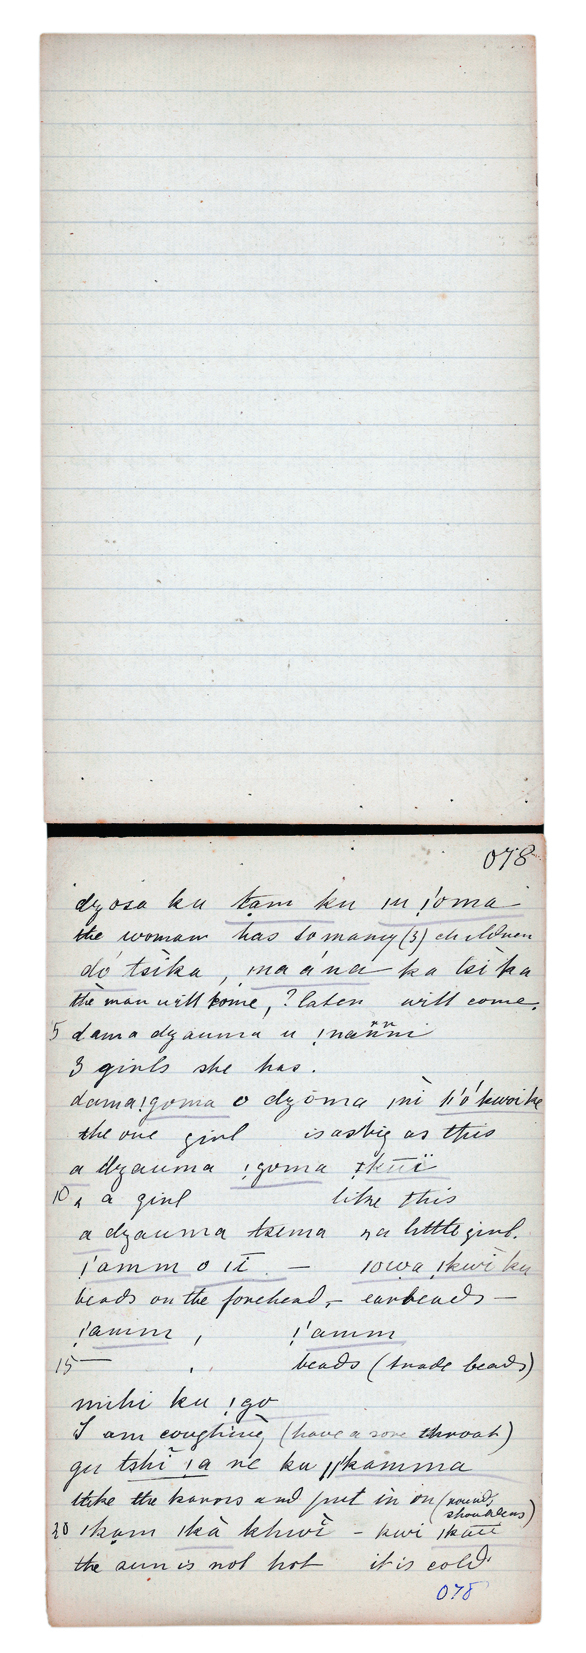 078
dzosa ku tam ku ıu !'oma
the woman has so many (3) children
dó tsìka, maána ka tsìka
the man will come, ? later will come.
5 dama dzauma u !nanni
3 girls she has.
dama !goma o dzōma ınì ǁ'ó'kwoike
the one girl is as big as this
a dzauma !goma
10 a girl like this
a dzauma tsema a little girl.
!'amm o ıī — ıowa ıkwì ku
beads on the forehead, - earbeads -
!'amm , !'amm
15 — , beads (trade beads)
mihi ku !go
I am coughing (have a sore throat)
gu tshì !a ne ku ǁkamma
take the kaross and put in on (round, shoulders)
20 ıkam ıkà khwì - kwi ıkaū
the sun is not hot it is cold.
078